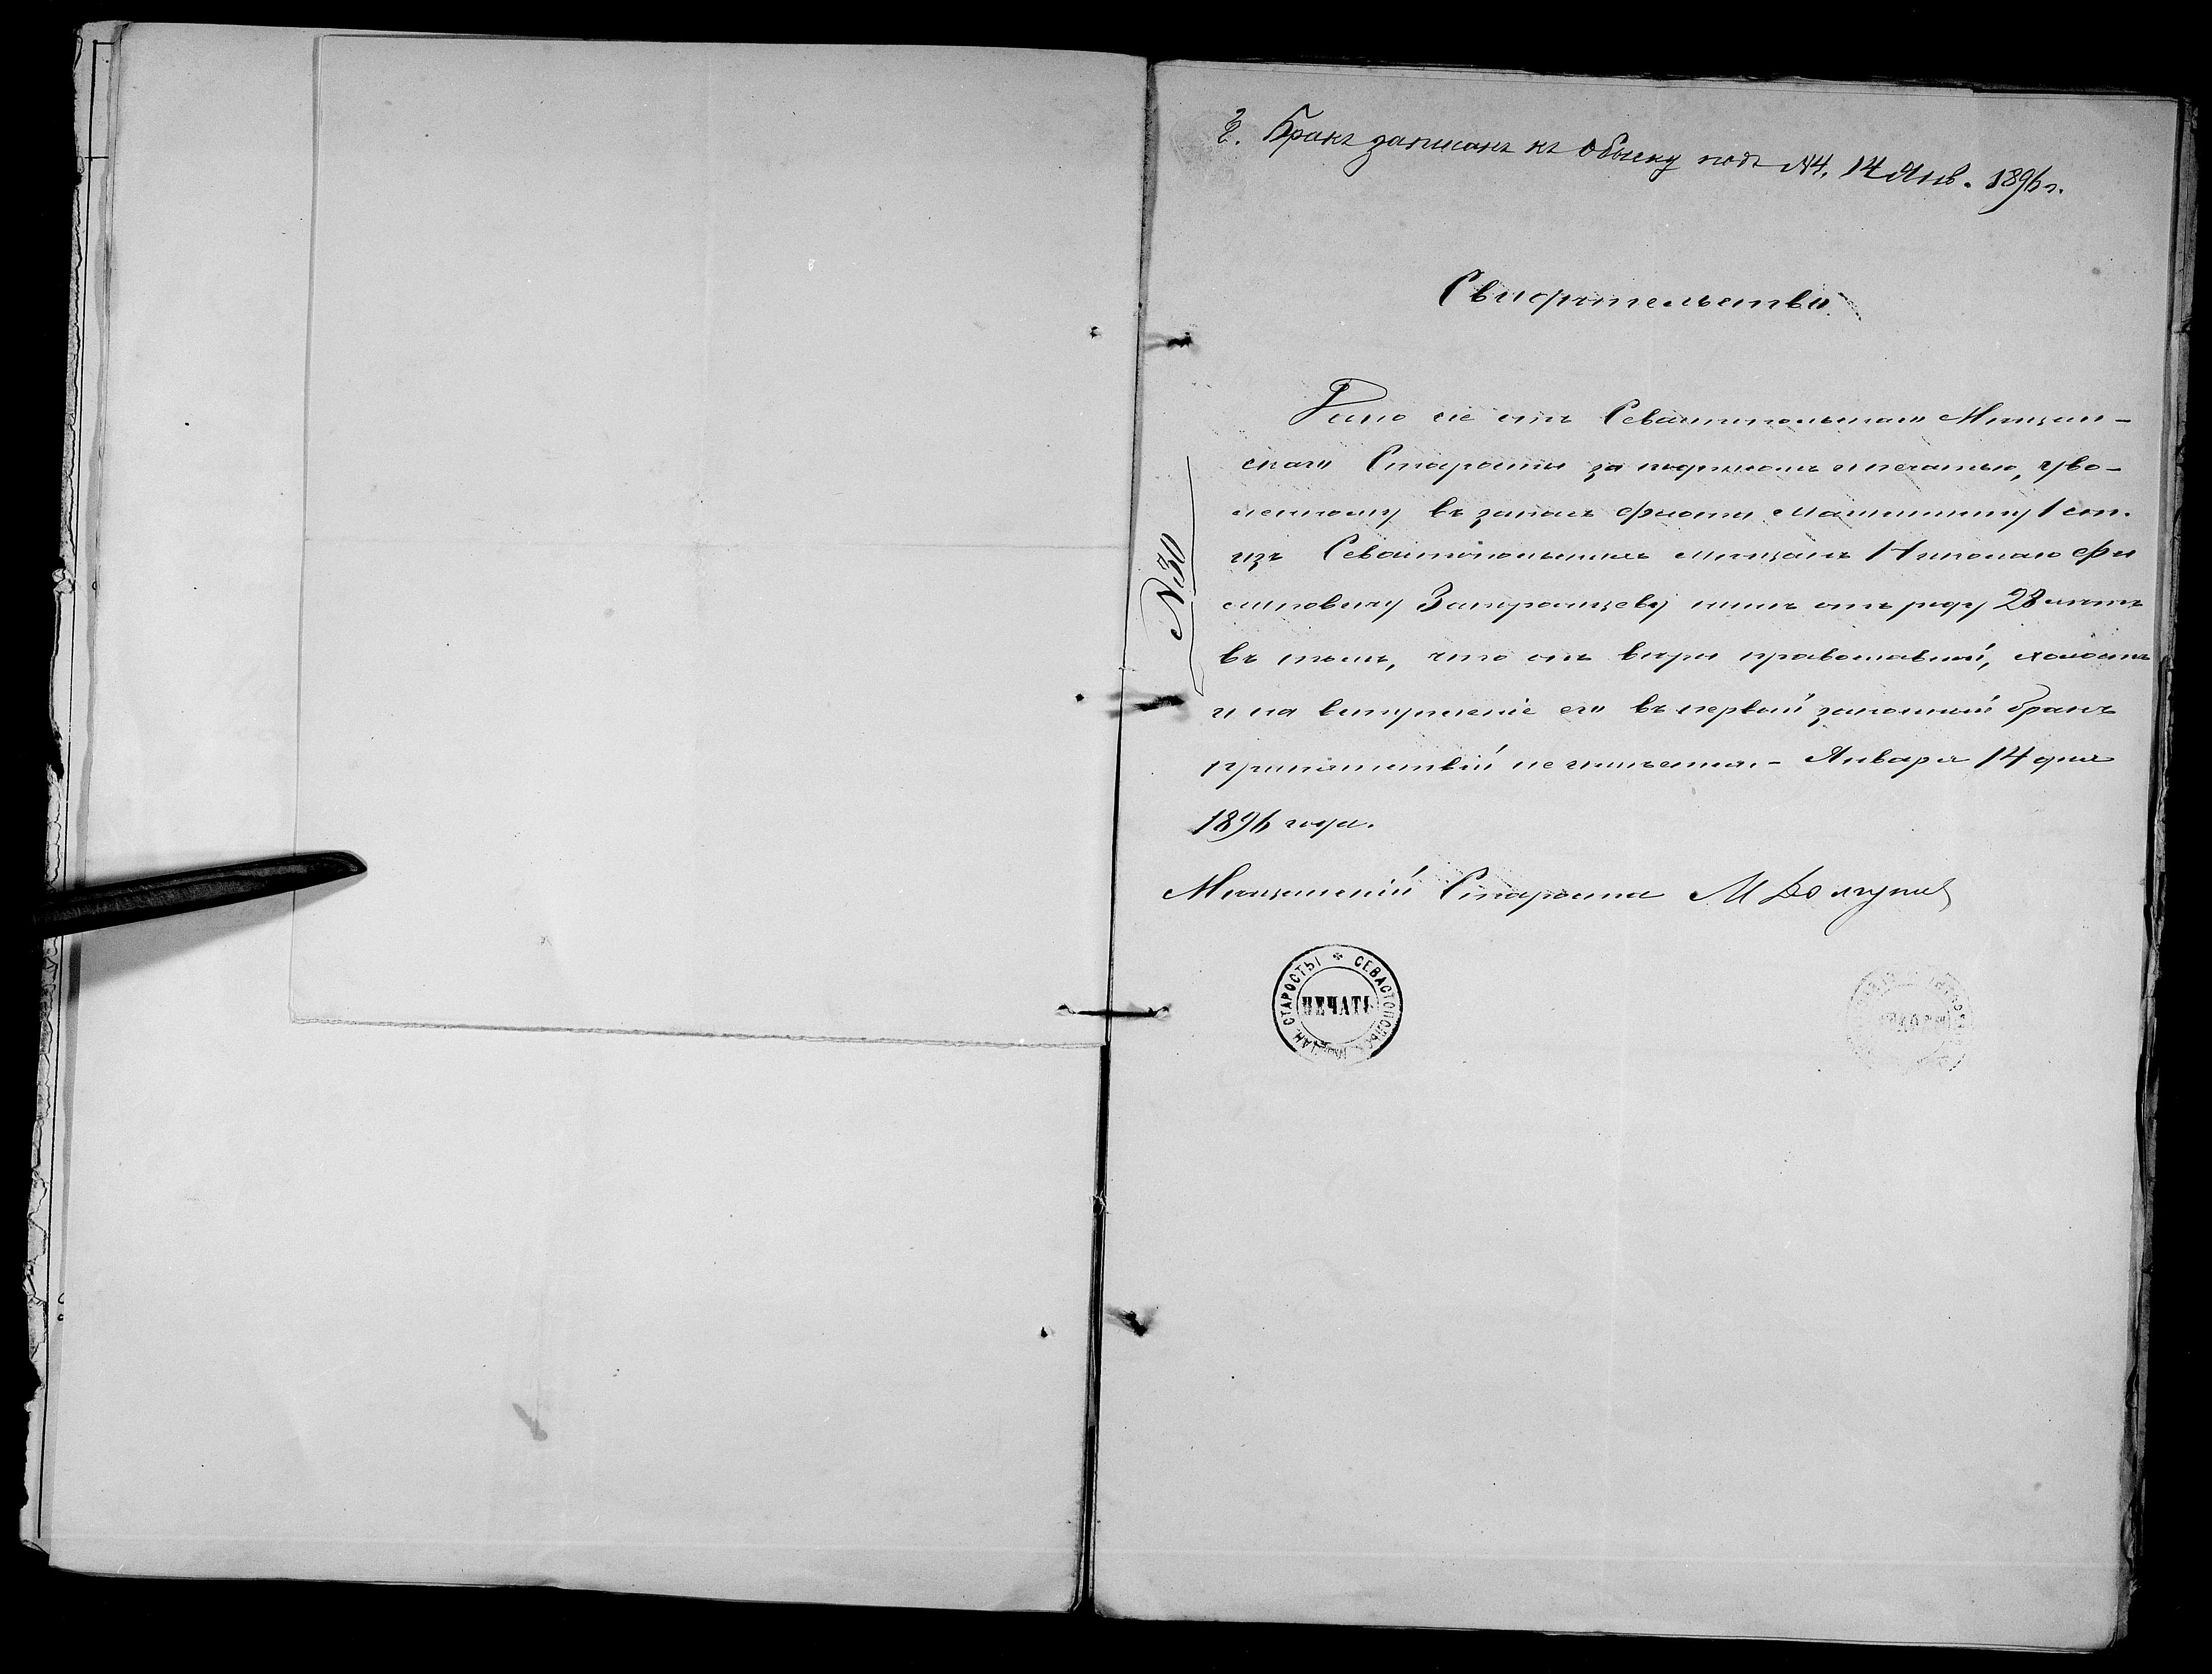 2. Бракъ записанъ къ обыску подъ №4, 14 Янв. 1896 г.
Свидѣтельство.
Дано сіе отъ Севастопольскаго Мѣщан-
скаго Старосты за подписомъ и печатью, уво-
ленному въ запасъ флота машинисту 1 ст.
изъ Севастопольскихъ мѣщанъ Николаю Фи
липовичу
нынѣ отъ роду 28 лѣтъ
въ томъ, что онъ вѣры православной, холостъ
и на вступленіе его въ первый законный бракъ
препятствій не имѣется. - Января 14 дня
1896 года.
Мѣщанскій Староста М
№30
СЕВАСТОПОЛЬСК. МѢЩАН. СТАРОСТЫ
ПЕЧАТЬ